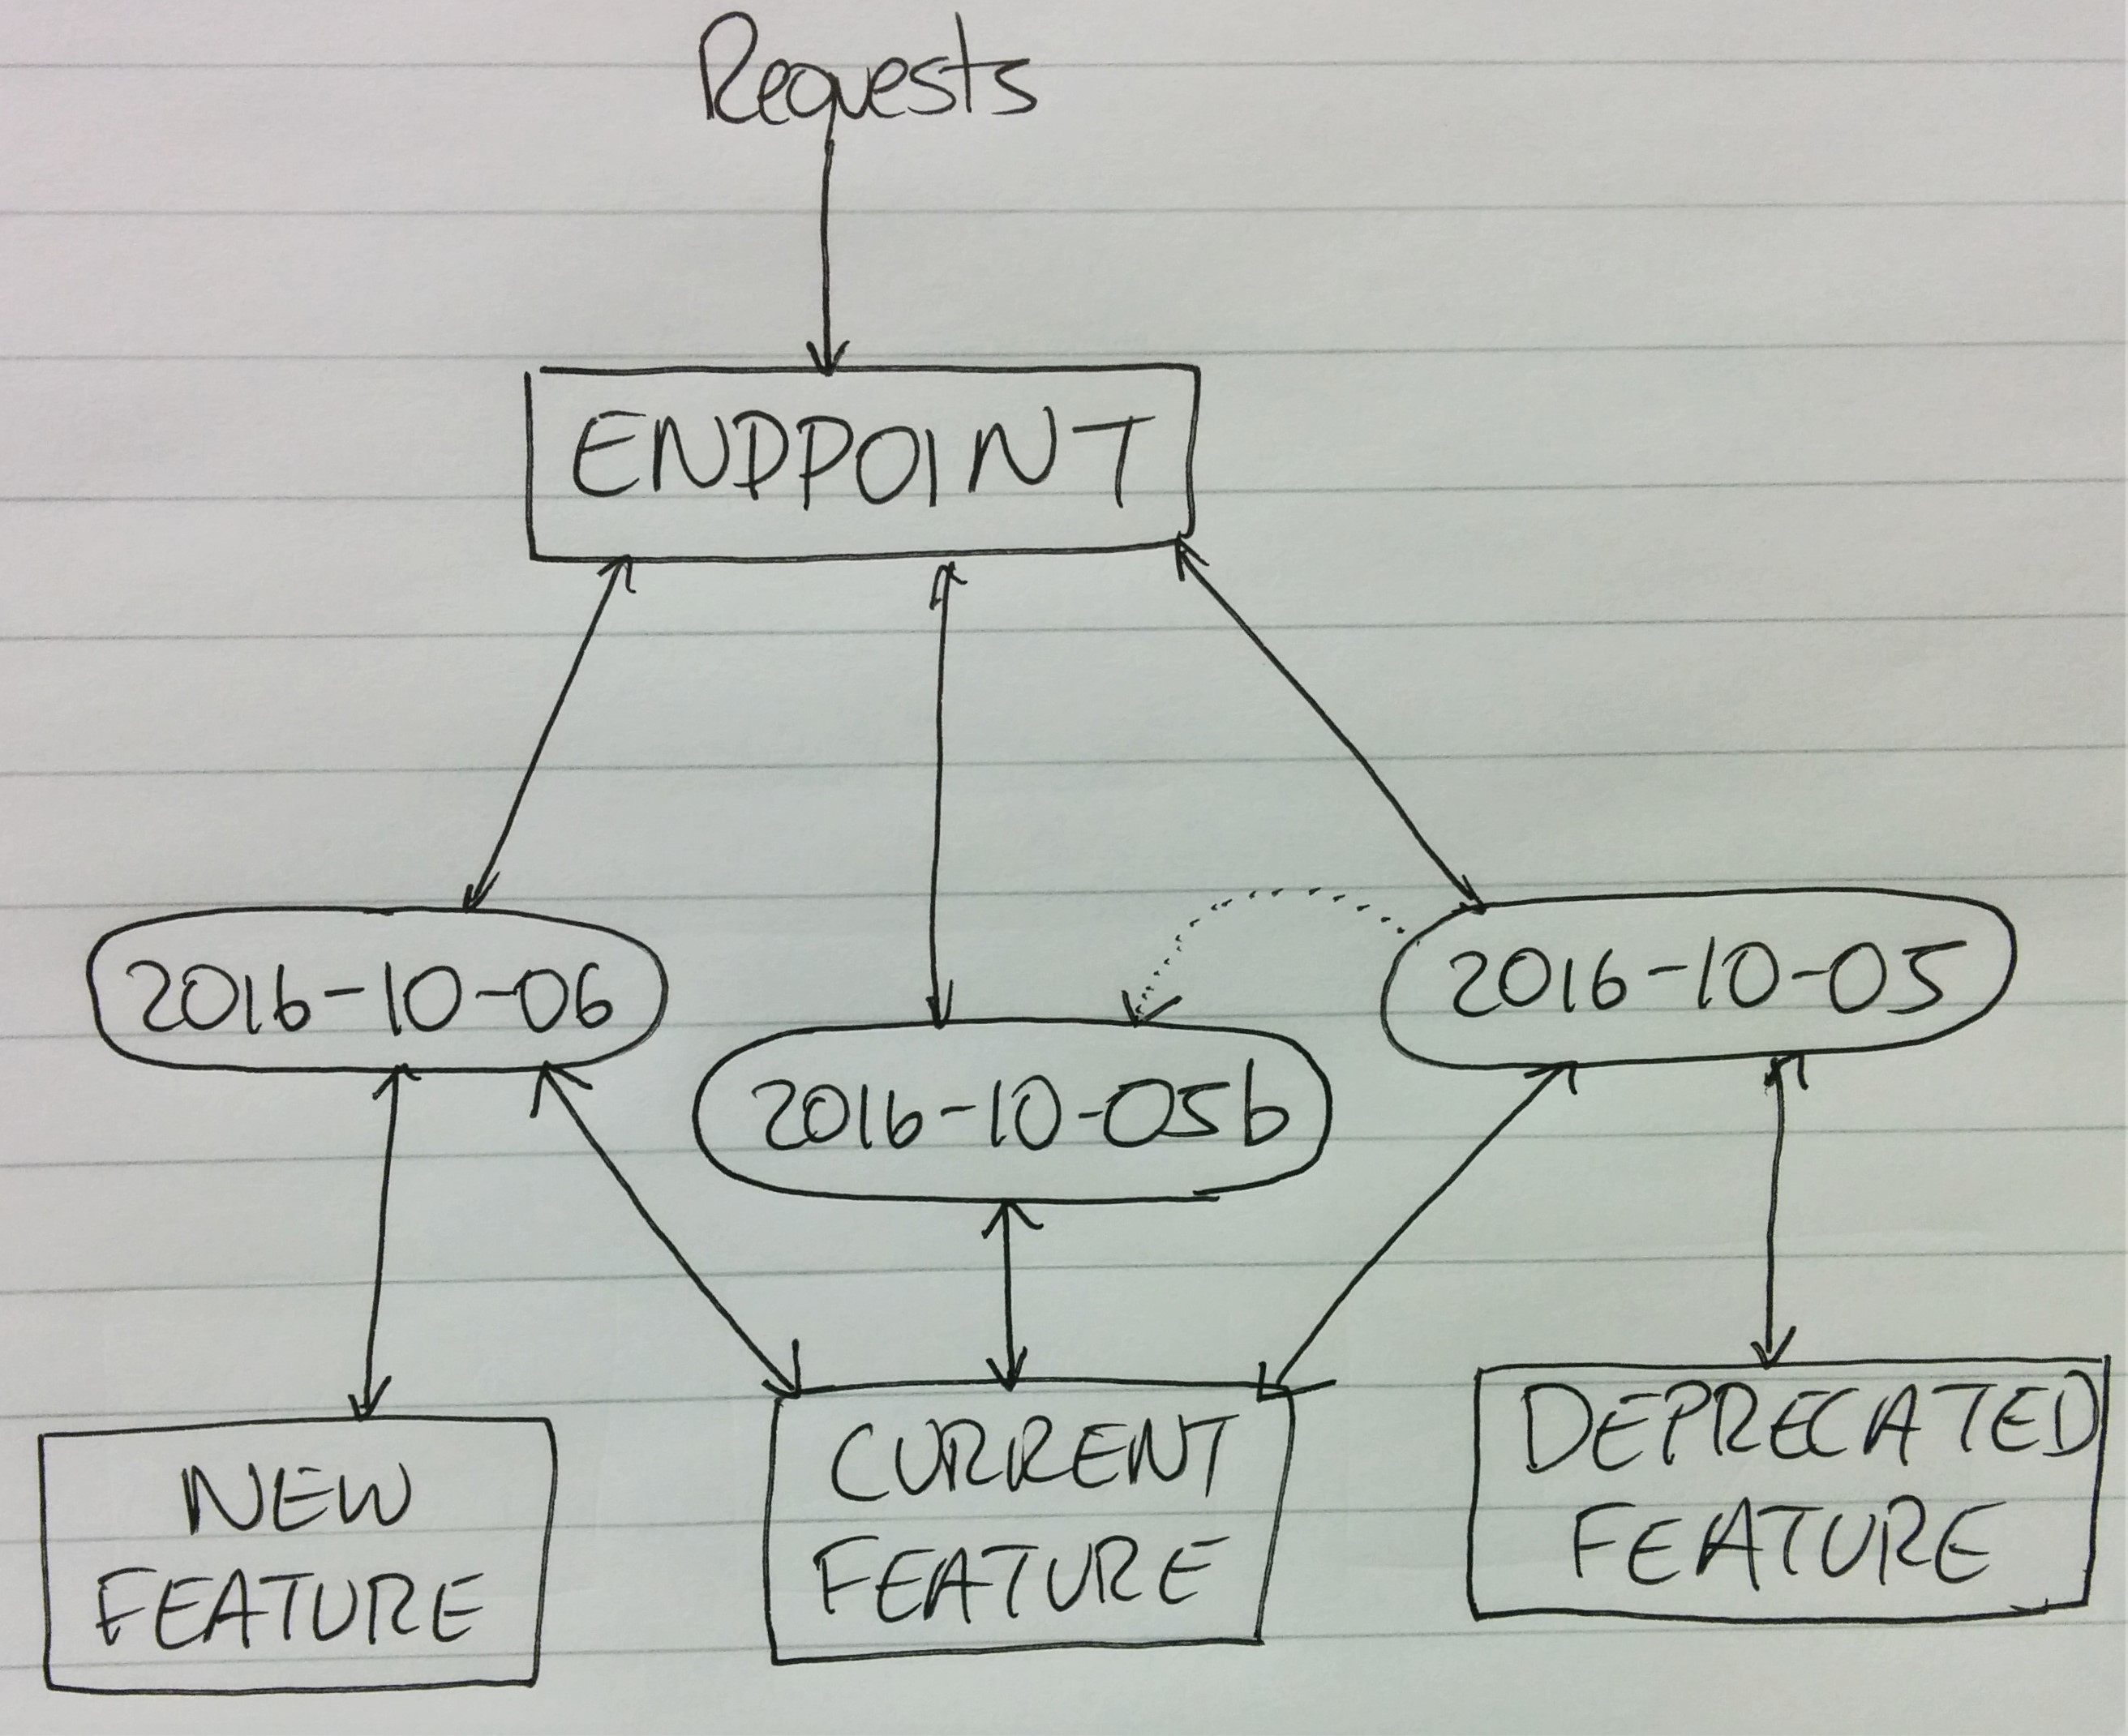 Requests
ENDPOINT
2016-10-06
2016-10-05
2016-10-05b
NEW
FEATURE
CURRENT
FEATURE
DEPRECATED
FEATURE